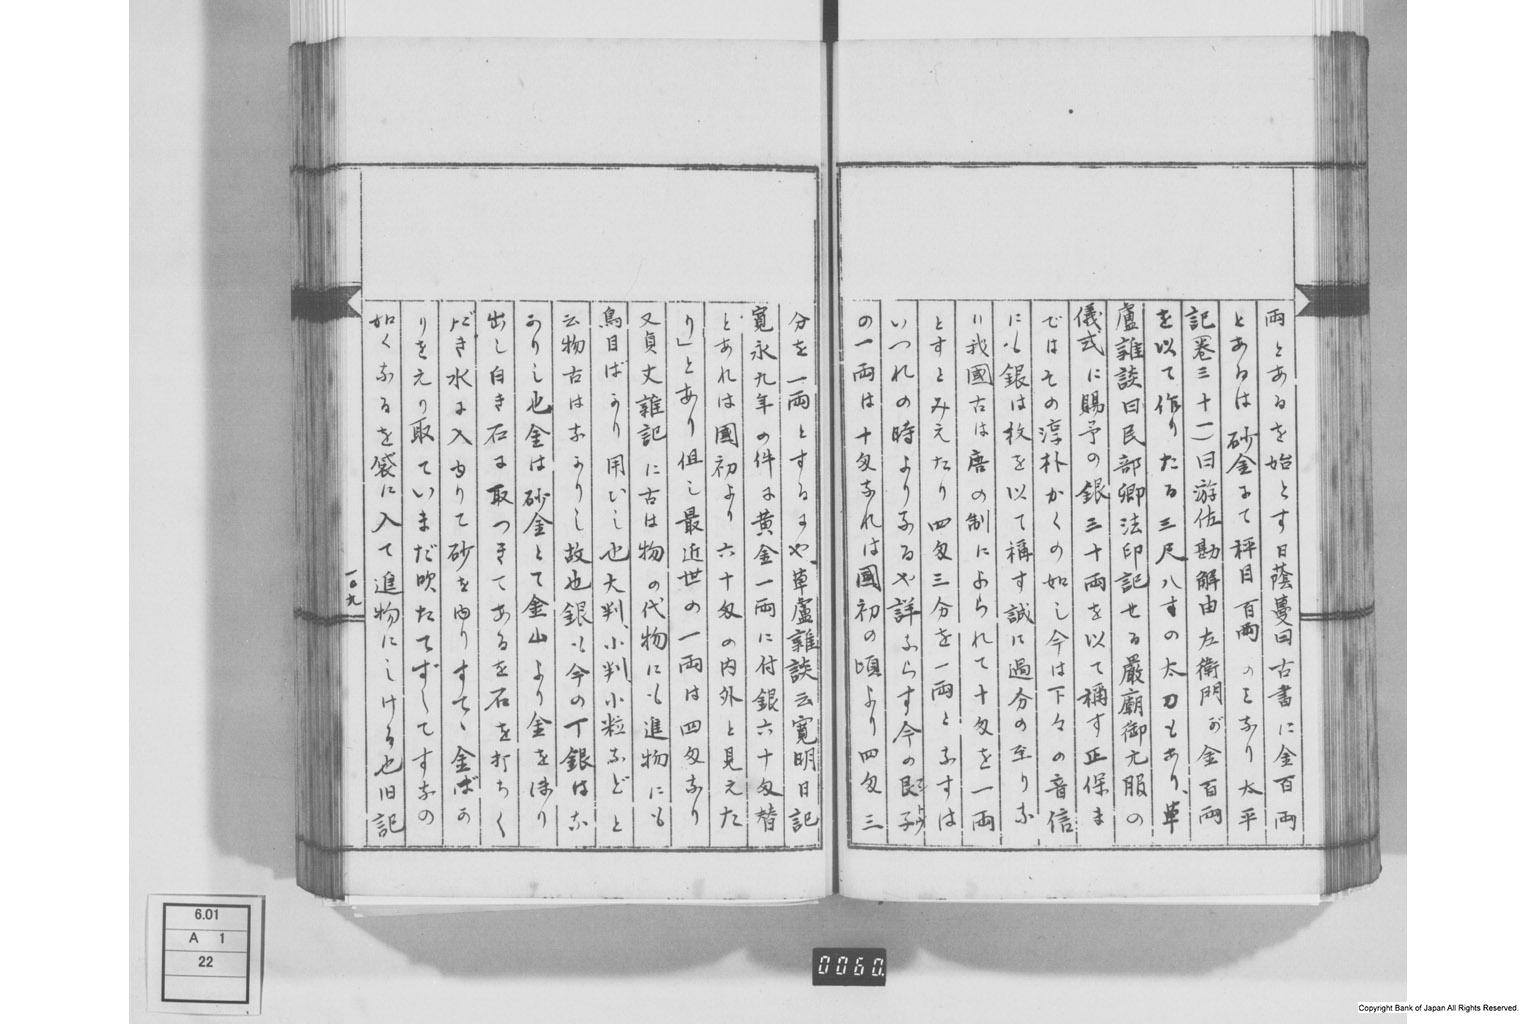 両とあるを始とす日蔭蔓曰古書に金百両
とあるは砂金にて秤目百両のみなり太平
記(巻三十一)曰游佐勘解由左衛門が金百両
を以て作りたる三尺八寸の太刀もあり、草
廬雑談曰民部卿法印記せる厳廟御元服の
儀式に賜予の銀三十両を以て稱す正保ま
ではその淳朴かくの如し今は下々の音信
にも銀は枚を以て稱す誠に過分の至りな
り我國古は唐の制によられて十匁を一両
とすとみえたり四匁三分を一両となすは
いつれの時よりなるや詳ならす今の艮子
の一両は十匁なれは國初の頃より四匁三
分を一両とするにや、草廬雑談云寛明日記
寛永九年の件に黄金一両に付銀六十匁替
とあれは國初より六十匁の内外と見えた
り」とあり但し最近世の一両は四匁なり
又貞丈雑記に古は物の代物にも進物にも
鳥目ばかり用ひし也大判、小判小粒などと
云物古はなかりし故也銀も今の丁銀はな
かりし也金は砂金とて金山より金をほり
出し白き石に取つきてあるを石を打ちく
だき水に入ゆりて砂をゆりすて、金ばか
りをえり取ていまだ吹たてずしてすなの
如くなるを袋に入て進物にしける也旧記
一〇九
6.01
A 1
22
0060.
Copyright Bank of Japan All Rights Reserved.